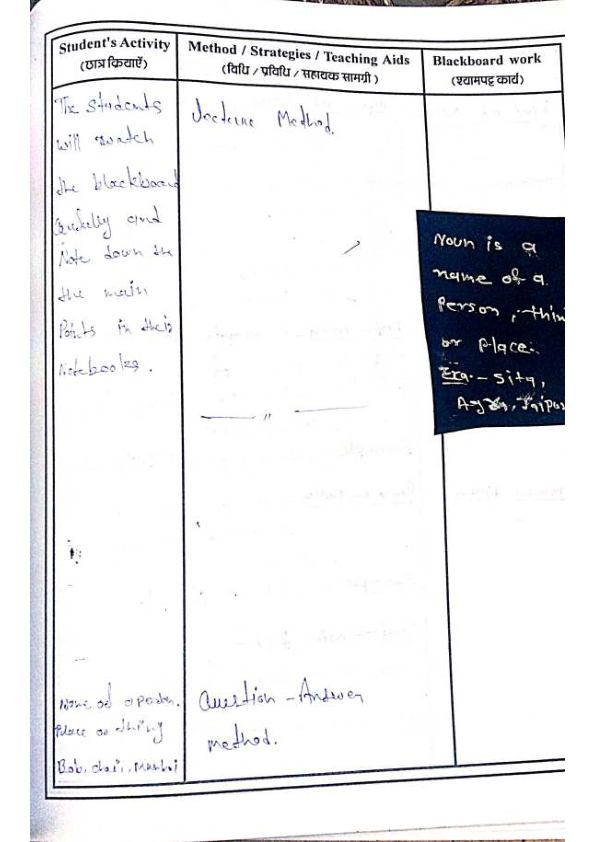 Student's Activity
(छात्र क्रियाएँ)
Method / Strategies / Teaching Aids
(विधि / प्रविधि / सहायक सामग्री)
Blackboard work
(श्यामपट्ट कार्य)
The Students
will watch
the blackboard
and
Note down the
the main
Points in their
Notebooks.
Method.
Noun is a
name of a
Person, thin
or Place.
Exa. - Sita,
Agra, Jaipur
— " —
Place or thing
Bob, chair, Mumbai
Question - Answer
method.